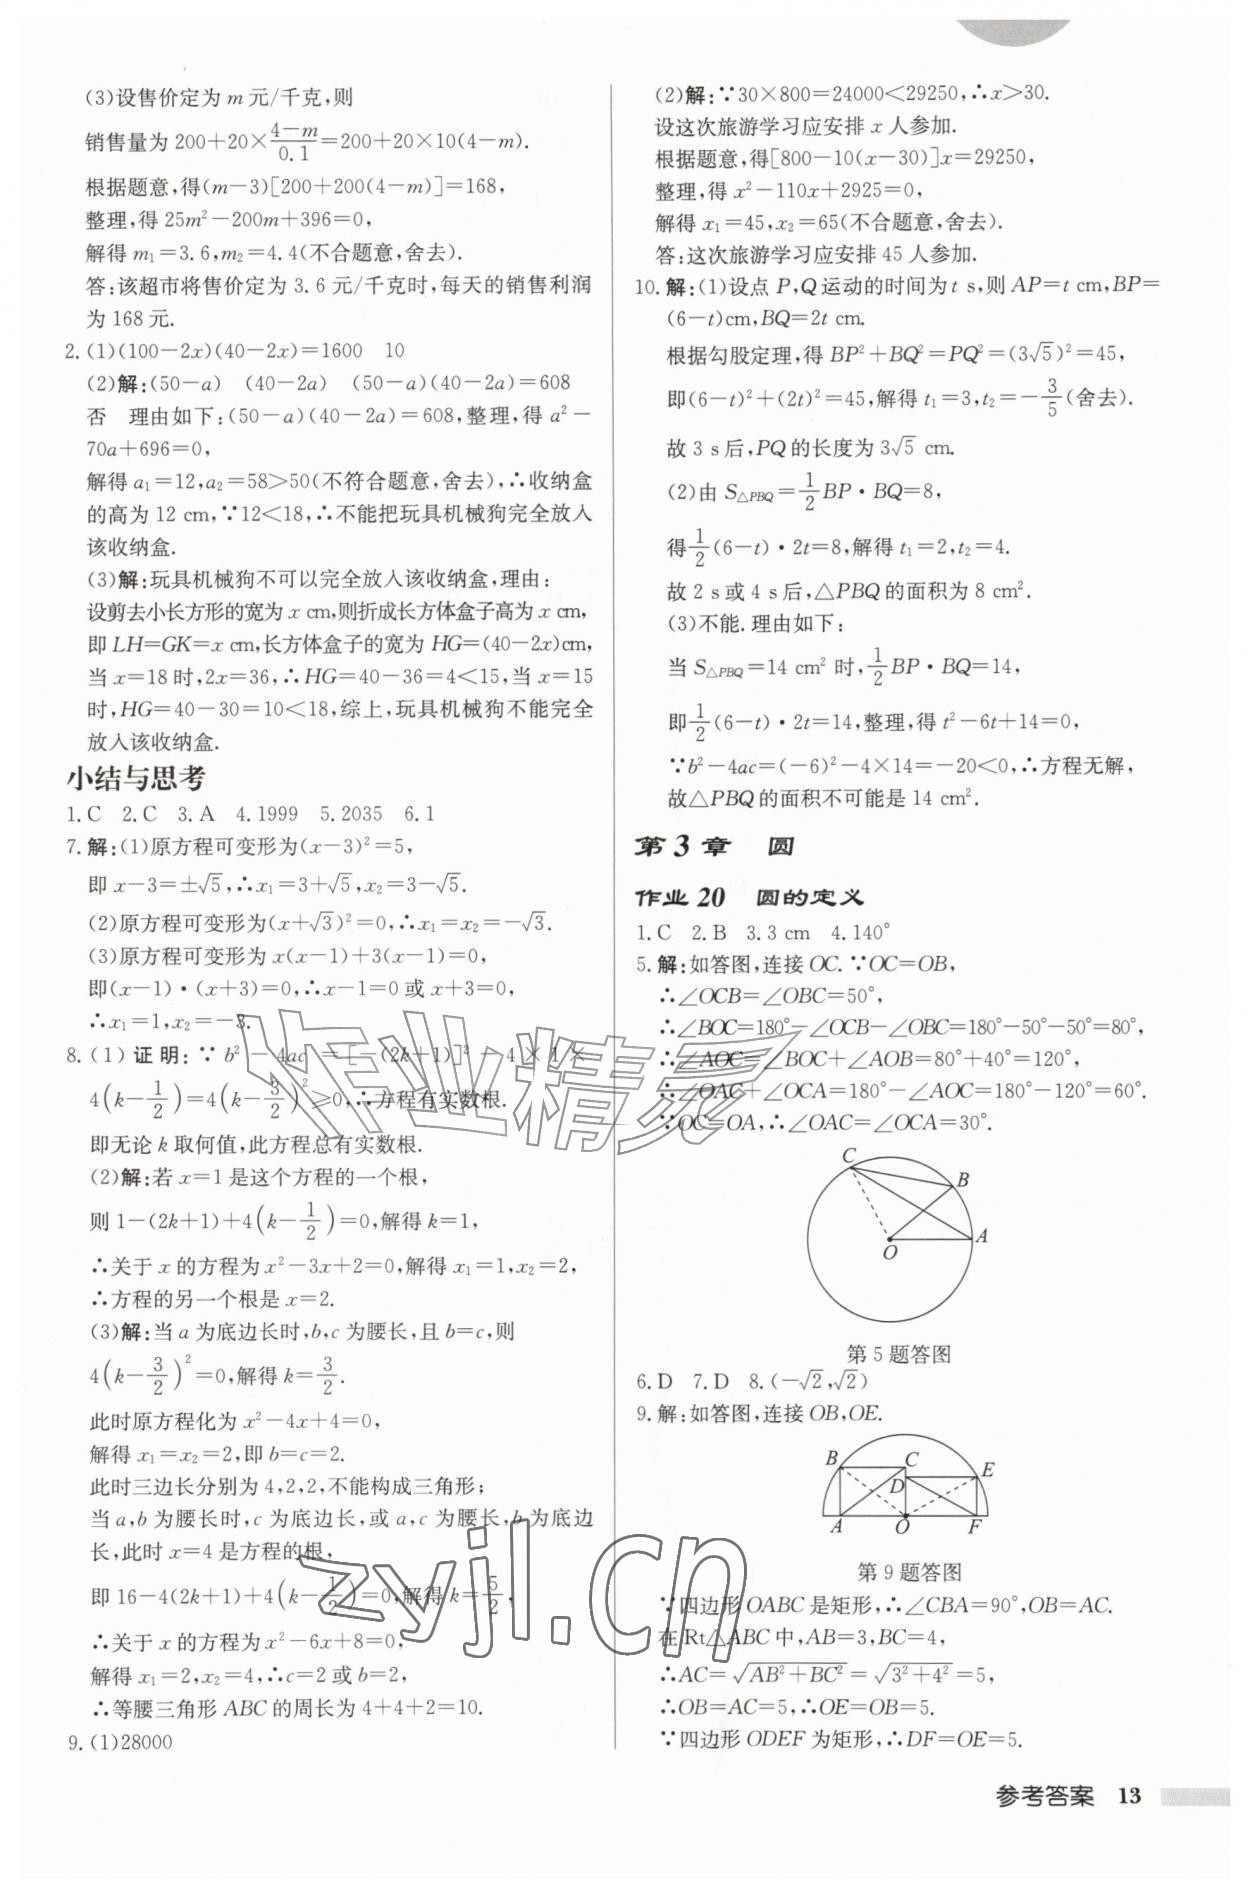 (3)设售价定为 m 元/千克,则
销售量为 200+20×\frac{4-m}{0.1}=200+20×10(4-m).
根据题意,得(m-3)[200+200(4-m)]=168,
整理,得 25m²-200m+396=0,
解得 m₁=3.6,m₂=4.4(不合题意,舍去).
答:该超市将售价定为 3.6 元/千克时,每天的销售利润
为 168 元.
2.(1)(100-2x)(40-2x)=1600 10
(2)解:(50-a) (40-2a) (50-a)(40-2a)=608
否 理由如下:(50-a)(40-2a)=608,整理,得 a²-
70a+696=0,
解得 a₁=12,a₂=58>50(不符合题意,舍去),∴收纳盒
的高为 12 cm,∵12<18,∴不能把玩具机械狗完全放入
该收纳盒.
(3)解:玩具机械狗不可以完全放入该收纳盒,理由:
设剪去小长方形的宽为 x cm,则折成长方体盒子高为 x cm,
即 LH=GK=x cm,长方体盒子的宽为 HG=(40-2x)cm,
当 x=18 时,2x=36,∴HG=40-36=4<15,当 x=15
时,HG=40-30=10<18,综上,玩具机械狗不能完全
放入该收纳盒.
小结与思考
1.C 2.C 3.A 4.1999 5.2035 6.1
7.解:(1)原方程可变形为(x-3)²=5,
即 x-3=±√5,∴x₁=3+√5,x₂=3-√5.
(2)原方程可变形为(x+√3)²=0,∴x₁=x₂=-√3.
(3)原方程可变形为 x(x-1)+3(x-1)=0,
即(x-1)·(x+3)=0,∴x-1=0 或 x+3=0,
∴x₁=1,x₂=-3.
8.(1)证明:∵b²-4ac=[-(2k+1)]²-4×1×
4(k-\frac{1}{2})=4(k-\frac{3}{2})²≥0,∴方程有实数根.
即无论 k 取何值,此方程总有实数根.
(2)解:若 x=1 是这个方程的一个根,
则 1-(2k+1)+4(k-\frac{1}{2})=0,解得 k=1,
∴关于 x 的方程为 x²-3x+2=0,解得 x₁=1,x₂=2,
∴方程的另一个根是 x=2.
(3)解:当 a 为底边长时,b,c 为腰长,且 b=c,则
4(k-\frac{3}{2})²=0,解得 k=\frac{3}{2}.
此时原方程化为 x²-4x+4=0,
解得 x₁=x₂=2,即 b=c=2.
此时三边长分别为 4,2,2,不能构成三角形;
当 a,b 为腰长时,c 为底边长,或 a,c 为腰长,b 为底边
长,此时 x=4 是方程的根,
即 16-4(2k+1)+4(k-\frac{1}{2})=0,解得 k=\frac{5}{2},
∴关于 x 的方程为 x²-6x+8=0,
解得 x₁=2,x₂=4,∴c=2 或 b=2,
∴等腰三角形 ABC 的周长为 4+4+2=10.
9.(1)28000
(2)解:∵30×800=24000<29250,∴x>30.
设这次旅游学习应安排 x 人参加.
根据题意,得[800-10(x-30)]x=29250,
整理,得 x²-110x+2925=0,
解得 x₁=45,x₂=65(不合题意,舍去).
答:这次旅游学习应安排 45 人参加.
10.解:(1)设点 P,Q 运动的时间为 t s,则 AP=t cm,BP=
(6-t)cm,BQ=2t cm.
根据勾股定理,得 BP²+BQ²=PQ²=(3√5)²=45,
即(6-t)²+(2t)²=45,解得 t₁=3,t₂=-\frac{3}{5}(舍去).
故 3 s 后,PQ 的长度为 3√5 cm.
(2)由 S△PBQ=\frac{1}{2}BP·BQ=8,
得\frac{1}{2}(6-t)·2t=8,解得 t₁=2,t₂=4.
故 2 s 或 4 s 后,△PBQ 的面积为 8 cm².
(3)不能.理由如下:
当 S△PBQ=14 cm² 时,\frac{1}{2}BP·BQ=14,
即\frac{1}{2}(6-t)·2t=14,整理,得 t²-6t+14=0,
∵b²-4ac=(-6)²-4×14=-20<0,∴方程无解,
故△PBQ 的面积不可能是 14 cm².
第3章 圆
作业20 圆的定义
1.C 2.B 3.3 cm 4.140°
5.解:如答图,连接 OC.∵OC=OB,
∴∠OCB=∠OBC=50°,
∴∠BOC=180°-∠OCB-∠OBC=180°-50°-50°=80°,
∴∠AOC=∠BOC+∠AOB=80°+40°=120°,
∴∠OAC+∠OCA=180°-∠AOC=180°-120°=60°.
∵OC=OA,∴∠OAC=∠OCA=30°.
C
B
A
O
第5题答图
6.D 7.D 8.(-√2,√2)
9.解:如答图,连接 OB,OE.
B C E
D
A O F
第9题答图
∵四边形 OABC 是矩形,∴∠CBA=90°,OB=AC.
在 Rt△ABC 中,AB=3,BC=4,
∴AC=√(AB²+BC²)=√(3²+4²)=5,
∴OB=AC=5,∴OE=OB=5.
∵四边形 ODEF 为矩形,∴DF=OE=5.
参考答案 13
作业精灵
zyjl.cn